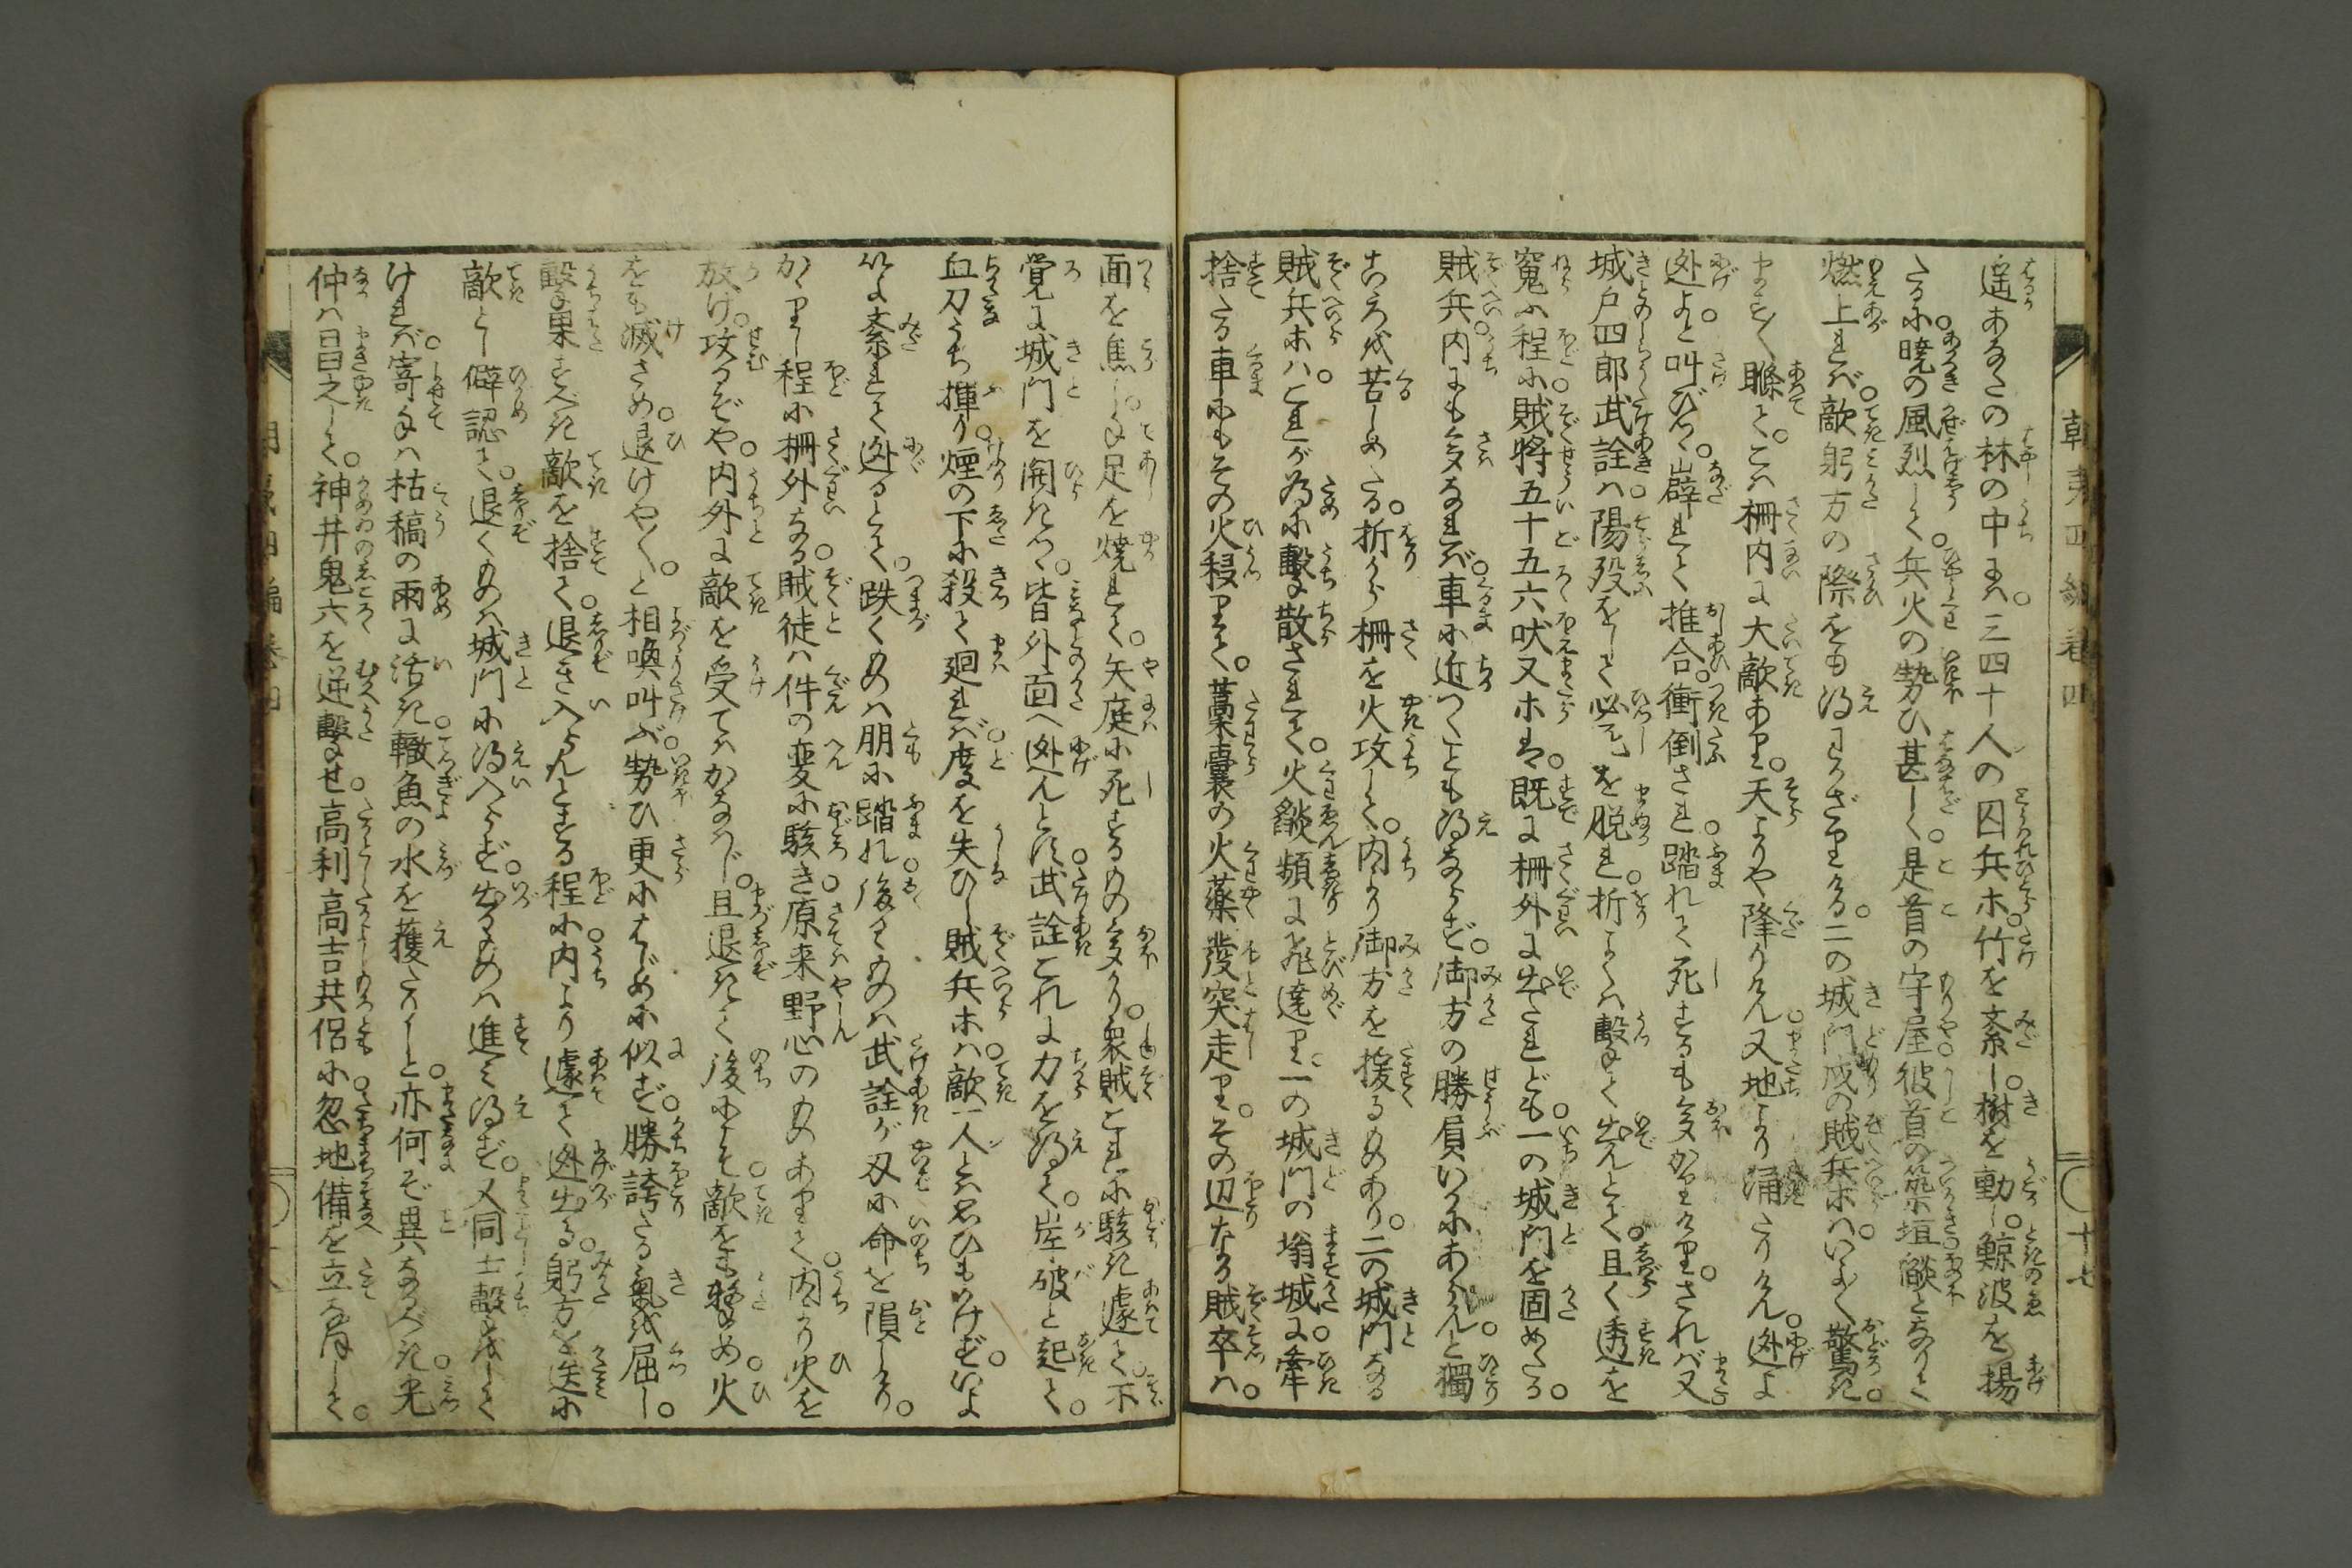 朝夷四編巻四
十七
遥あなたの林の中には三四十人の囚兵ホ。竹を紊し。樹を動し。鯨波を揚
たるに。暁の風烈しく。兵火の勢ひ甚しく。是首の守屋。彼首の築垣。燄となりて
燃上れば。敵躬方の際をも得わかざりける。二の城門戍の賊兵ホは。いよ〳〵驚き。
まどひ騒て。こは柵内に大敵あり。天よりや降りけん。又地より涌たりけん。迯よ
迯よと。叫びつ。辟れて推合衝倒され。踏れて死するも多かりけり。されば又
城戸四郎武詮は陽歿をして必死を脱れ。折よくは轂て出んとて。且く透を
窺ふ程に。賊将五十五六吠又ホは。既に柵外に出たれども。一の城門を固めたる
賊兵。内にも多なれば。車に近つくことも得ならず。御方の勝負いかにあらんと。獨
こゝろを苦しめたる。折から柵を火攻して。内より御方を援るものあり。二の城門なる
賊兵ホは。これが為に轂散されて。火燄頻に飛遶り。一の城門の塲城に。牽
捨たる車にもその火移りて。藁嚢の火薬發突走り。その辺なる賊卒は。
面を焦し。手足を焼れて。矢庭に死するもの多かり。衆賊これに駭き遽て。不
覚に城門を開きつ。皆外面へ迯んとす。武詮これに力を得て。岸破と起て。
血刀うち揮り。煙の下に殺て廻れば。度を失ひし賊兵ホは。敵一人とは思ひもかけず。いよ
いよ紊れて迯るとて。跌くものは朋に踏れ。後るゝものは武詮が刃に命を隕しけり。
かゝりし程に柵外なる。賊徒は件の変に駭き。原来野心のものありて。内より火を
放け。攻るぞや。内外に敵を受てはかなはじ。且退きて後にこそ敵をも轂め。火
をも滅さめ。退けや〳〵。と相喚叫ぶ勢ひ更にはじめに似ず。勝誇たる氣を屈し。
轂果すべき敵を捨て。退き入らんとする程に。内より遽て迯出る。躬方を迭に
敵とし僻認て。退くものは城門に得入らず。出るものは進み得ず。又同士轂をして
けれ。ば寄手は枯稿の雨に活。轍魚の水を獲たりしと。亦何ぞ異なるべき。光
仲は昌之して。神井鬼六を逆轂せ。高利高吉共侶に忽地備を立なほして。